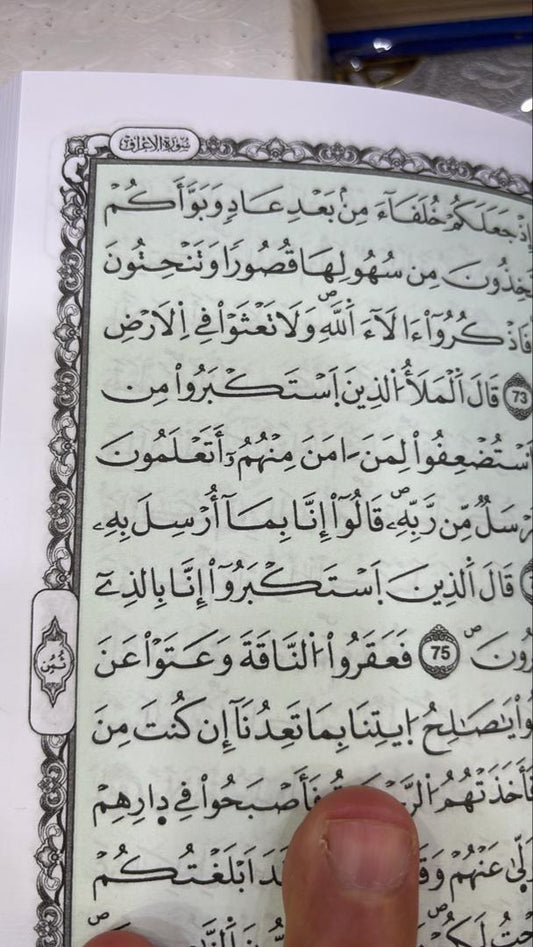 سُورَةُ الْاَعْرَافِ
إِذْ جَعَلَكُمْ خُلَفَآءَ مِنۢ بَعْدِ عَادٖ وَبَوَّأَكُمْ
تَّخِذُونَ مِن سُهُولِهَا قُصُورٗا وَتَنْحِتُونَ
فَاذْكُرُوٓاْ ءَالَآءَ اَ۬للَّهِۖ وَلَا تَعْثَوْاْ فِے اِ۬لَارْضِ
73 قَالَ اَ۬لْمَلَأُ اُ۬لذِينَ اَ۪سْتَكْبَرُواْ مِن
اَ۟سْتُضْعِفُواْ لِمَنَ اٰمَنَ مِنْهُمُۥٓ أَتَعْلَمُونَ
مُرْسَلٞ مِّن رَّبِّهِۦۖ قَالُوٓاْ إِنَّا بِمَآ أُرْسِلَ بِهِۦ
قَالَ اَ۬لذِينَ اَ۪سْتَكْبَرُوٓاْ إِنَّا بِالذِےٓ
رُونَۖ 75 فَعَقَرُواْ اُ۬لنَّاقَةَ وَعَتَوْاْ عَنَ
ثُمُن
وَاْ يَٰصَٰلِحُ اُ۪يتِنَا بِمَا تَعِدُنَآ إِن كُنتَ مِنَ
فَأَخَذَتْهُمُ اُ۬لرَّ فَأَصْبَحُواْ فِے د۪ارِهِمْ
وَلّ۪يٰ عَنْهُمْ وَقَ دَ اَبْلَغْتُكُمْ